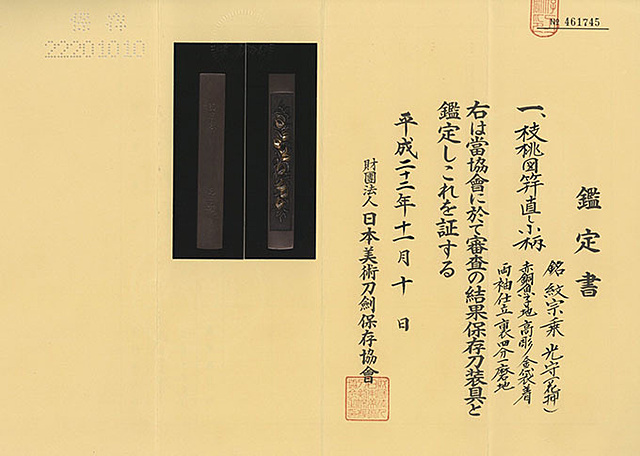 № 461745
保存
22201010
鑑定書
一、枝桃図笄直し小柄
銘 紋宗乗 光守(花押)
赤銅魚子地 高彫 金袋着
両袖仕立 裏四分一磨地
右は當協會に於て審査の結果保存刀装具と
鑑定しこれを証する
平成二十三年十一月十日
財團法人 日本美術刀劍保存協會